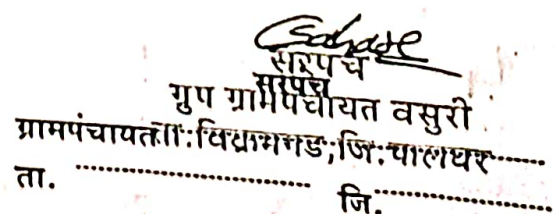 सरपंच
सरपंच
ग्रुप ग्रामपंचायत वसुरी
ग्रामपंचायत ता.विक्रमगड,जि.पालघर
ता. ....................... जि. .......................